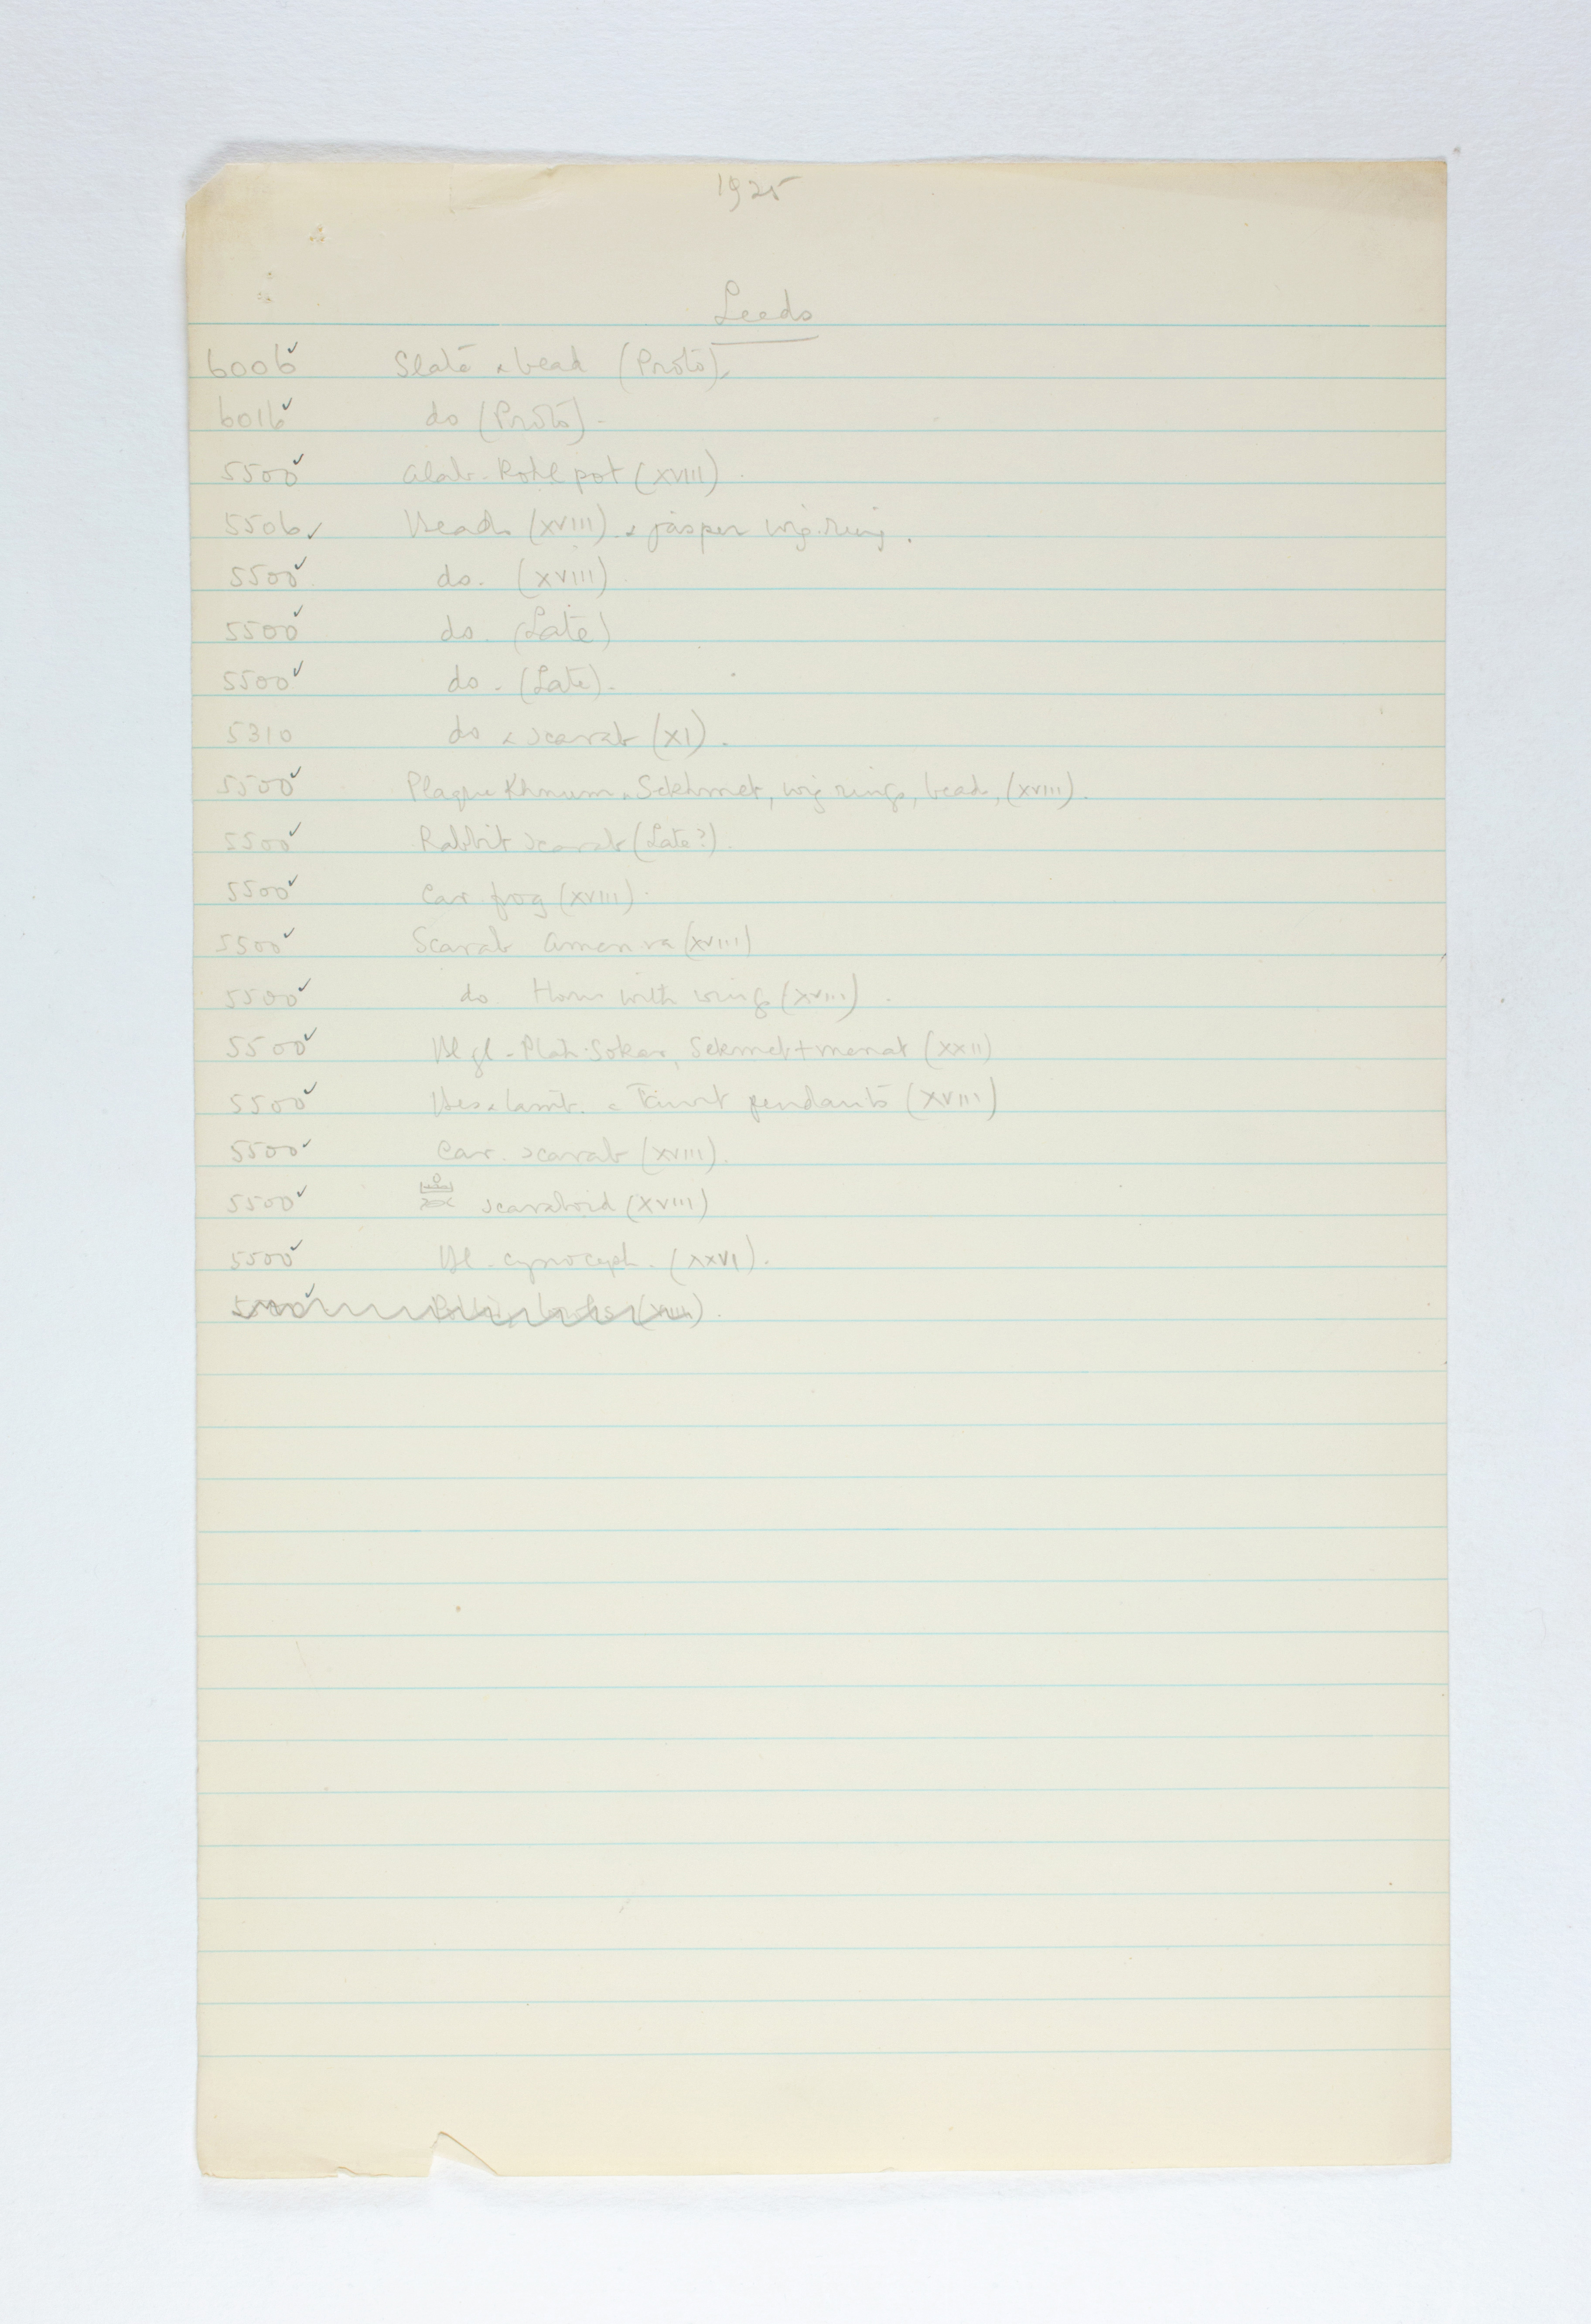 1925
Leeds
6006 ✓ Slate & bead (Proto).
6016 ✓ do (Proto) -
5500 ✓ Alab. Kohl pot (XVIII).
5506 ✓ Beads (XVIII) & jasper wig-ring.
5500 ✓ do. (XVIII)
5500 ✓ do. (Late)
5500 ✓ do. (Late).
5310 do & scarab (XI).
5500 ✓ Plaque Khnum & Sekhmet, wig rings, beads, (XVIII).
5500 ✓ Rabbit scarab (Late?).
5500 ✓ Car. frog (XVIII).
5500 ✓ Scarab Amen ra (XVIII)
5500 ✓ do Horus with wings (XVIII).
5500 ✓ Bl gl. Ptah-Sokar, Sekmet + menat (XXII)
5500 ✓ Bes & & Taurt pendants (XVIII)
5500 ✓ Car. scarab (XVIII).
5500 ✓ scaraboid (XVIII)
5500 ✓ Bl. cynoceph. (XXVI).